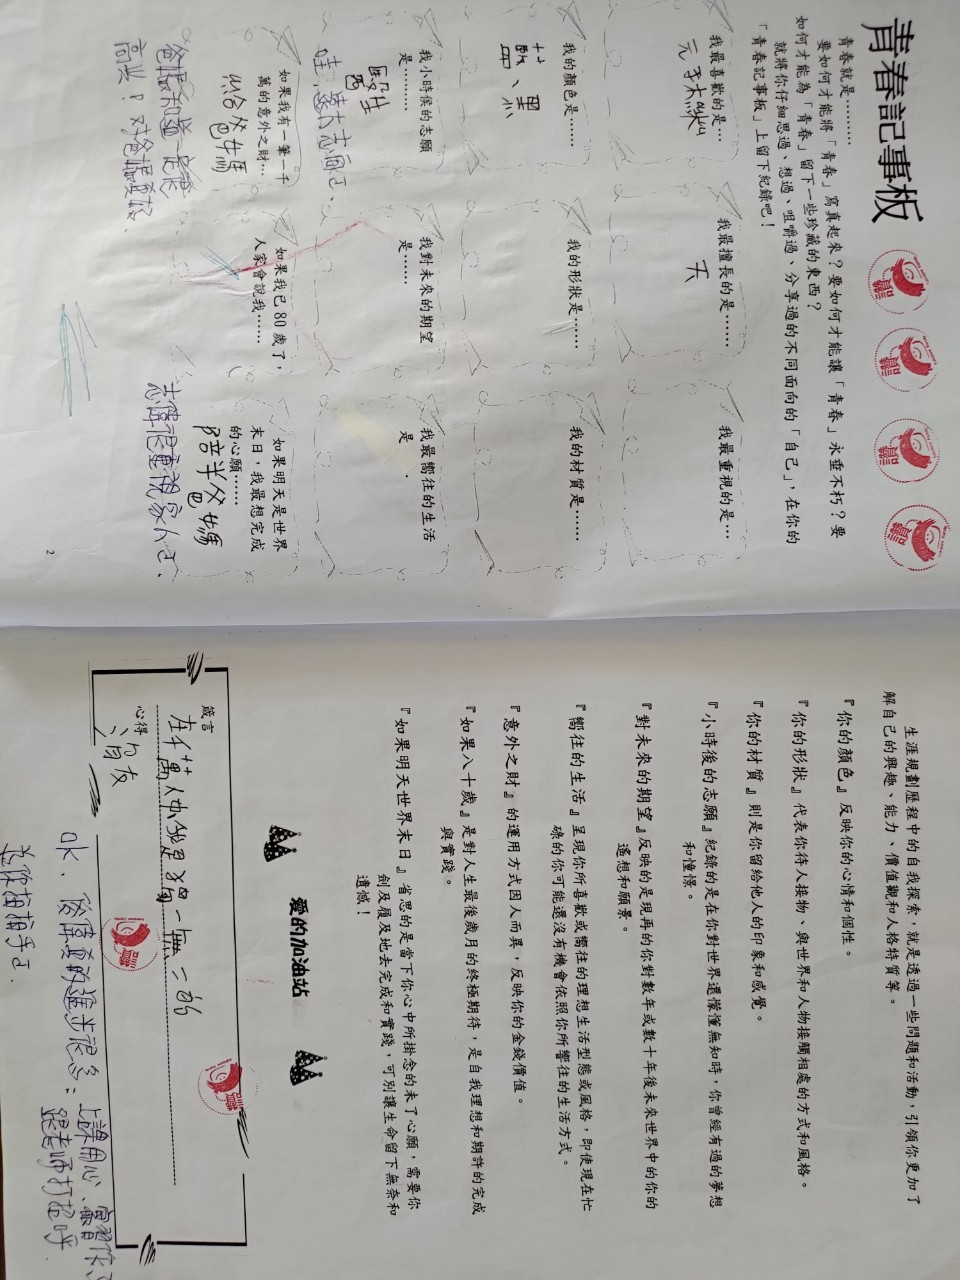 青春記事板
讚
讚
讚
讚
青春就是………
要如何才能將「青春」寫真起來？要如何才能讓「青春」永垂不朽？要
如何才能為「青春」留下一些珍藏的東西？
就將你仔細思過、想過、咀嚼過、分享過的不同面向的「自己」，在你的
「青春記事板」上留下紀錄吧！
我最喜歡的是…
我最擅長的是……
天
我最重視的是…
我的顏色是……
黑
我的形狀是……
我的材質是……
我小時侯的志願
是………
醫生
哇，遠大志願
我對未來的期望
是……
我最嚮往的生活
是．
如果我有一筆一千
萬的意外之財…
給爸媽
爸媽知道一定很
高興！
如果我已80歲了，
人家會說我……
如果明天是世界
末日，我最想完成
的心願……
陪半爸媽
志偉很重視家人
2
生涯規劃歷程中的自我探索，就是透過一些問題和活動，引領你更加了
解自己的興趣、能力、價值觀和人格特質等。
『你的顏色』反映你的心情和個性。
『你的形狀』代表你待人接物、與世界和人物接觸相處的方式和風格。
『你的材質』則是你留給他人的印象和感覺。
『小時後的志願』紀錄的是在你對世界還懞懂無知時，你曾經有過的夢想
和憧憬。
『對未來的期望』反映的是現再的你對數年或數十年後未來世界中的你的
遙想和願景。
『嚮往的生活』呈現你所喜歡或嚮往的理想生活型態或風格，即使現在忙
碌的你可能還沒有機會依照你所響往的生活方式。
『意外之財』的運用方式因人而異，反映你的金錢價值。
『如果八十歲』是對人生最後歲月的終極期待，是自我理想和期許的完成
與實踐。
『如果明天世界末日』省思的是當下你心中所掛念的未了心願，需要你
劍及履及地去完成和實踐，可別讓生命留下無奈和
遺憾！
愛的加油站
箴言
在千萬人你是獨一無二的
心得
沒有
讚
讚
進步很多：上課用心、
跟老師打招呼
為你拍拍手